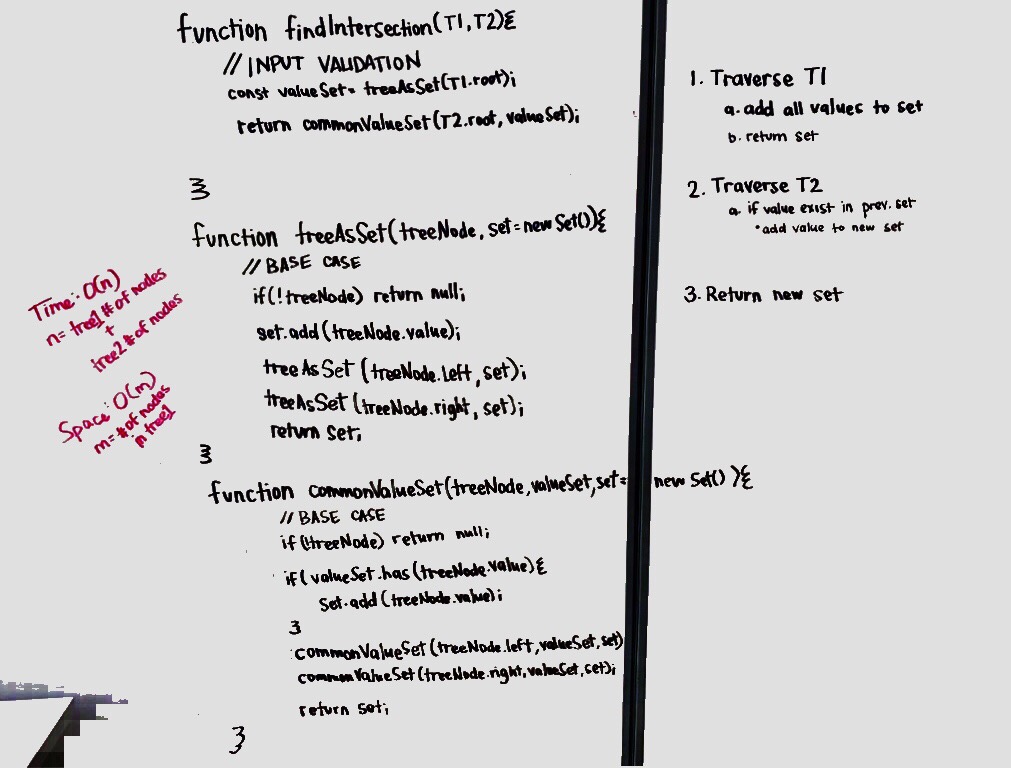 function findIntersection(T1,T2){
// INPUT VALIDATION
const valueSet= treeAsSet(T1.root);
return commonValueSet(T2.root, valueSet);
}
function treeAsSet(treeNode, set=new Set()){
// BASE CASE
if(!treeNode) return null;
set.add(treeNode.value);
treeAsSet(treeNode.left, set);
treeAsSet(treeNode.right, set);
return set;
}
function commonValueSet(treeNode,valueSet,set= new Set() ){
// BASE CASE
if(!treeNode) return null;
if(valueSet.has(treeNode.value){
Set.add(treeNode.value);
}
commonValueSet(treeNode.left,valueSet,set)
commonValueSet(treeNode.right,valueSet,set);
return set;
}
Time: O(n)
n= tree1 # of nodes
+
tree2 # of nodes
Space: O(m)
m= # of nodes
in tree1
1. Traverse T1
a. add all values to set
b. return set
2. Traverse T2
a. if value exist in prev. set
• add value to new set
3. Return new set